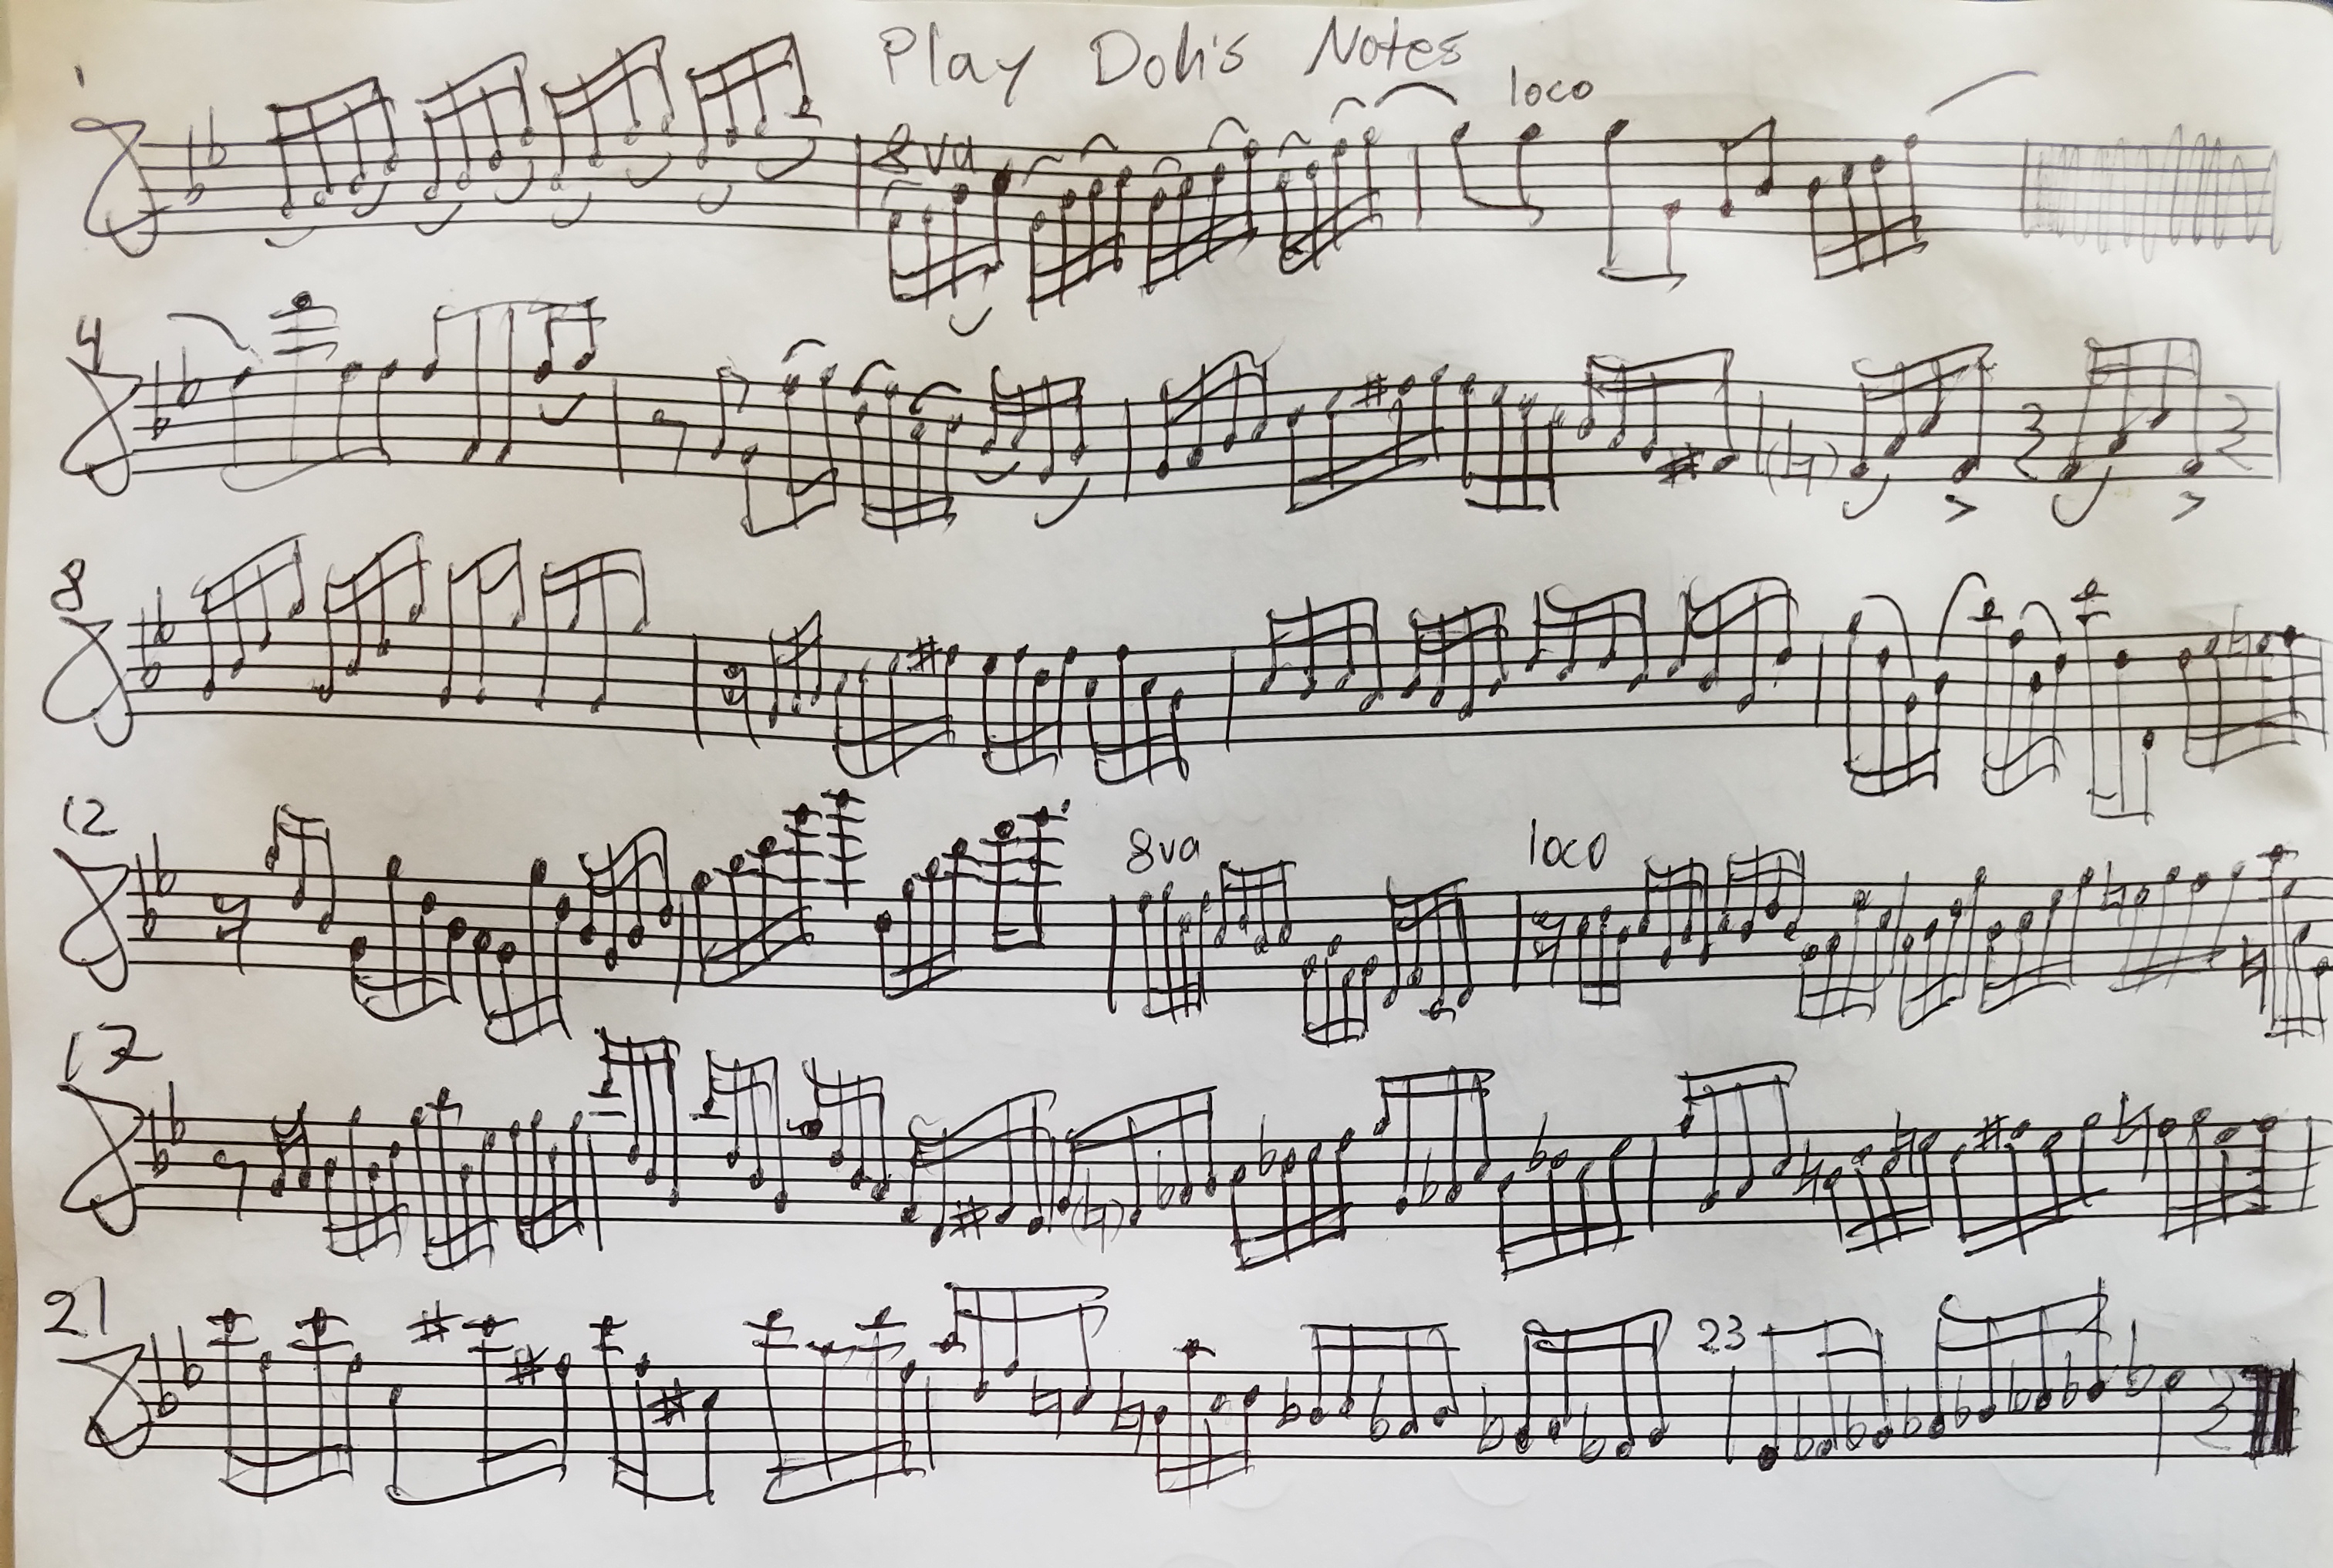 Play Doh's Notes
1
8va
loco
4
8
12
8va
loco
17
21
23